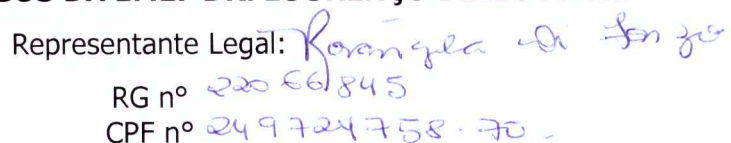 Representante Legal: Rosangela di
RG nº 22066845
CPF nº 249724758-70